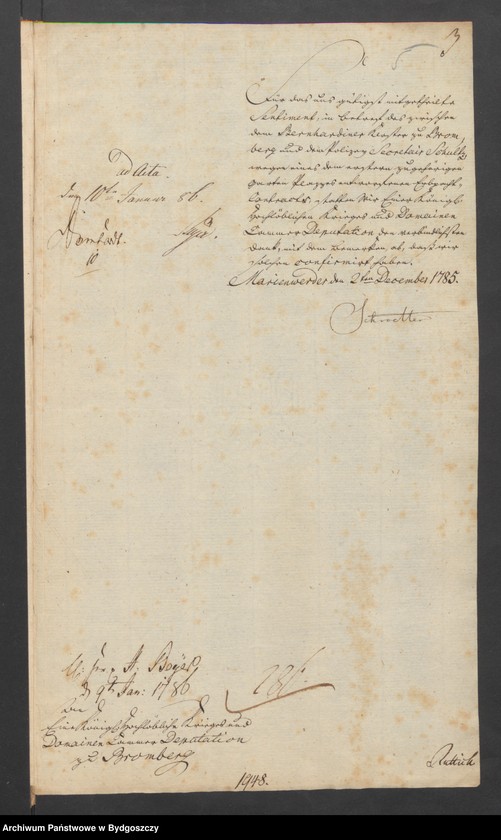 3
Für das uns gütigst mitgetheilte
Sentiment, in betreff des zwischen
dem Bernhardiner Kloster zu Brom
berg und dem Polizey Secretair Schultz
wegen eines dem erstern zugehörigen
Garten Platzes entworfenen Erbpacht,
Contracts, statten Wir Einer Königl.
Hochlöblichen Krieges und Domainen
Cammer Deputation den verbindlichsten
Dank, mit dem Bemerken ab, daß wir
solchen confirmirt haben.
Marienwerder den 2ten December 1785.
Schroetter
ad Acta.
den 10ten Januar 86.
H. Boyer
d 9t Jan: 1786
An
Eine Königl. Hochlöbliche Krieges und
Domainen Cammer Deputation
zu Bromberg
1948.
Archiwum Państwowe w Bydgoszczy